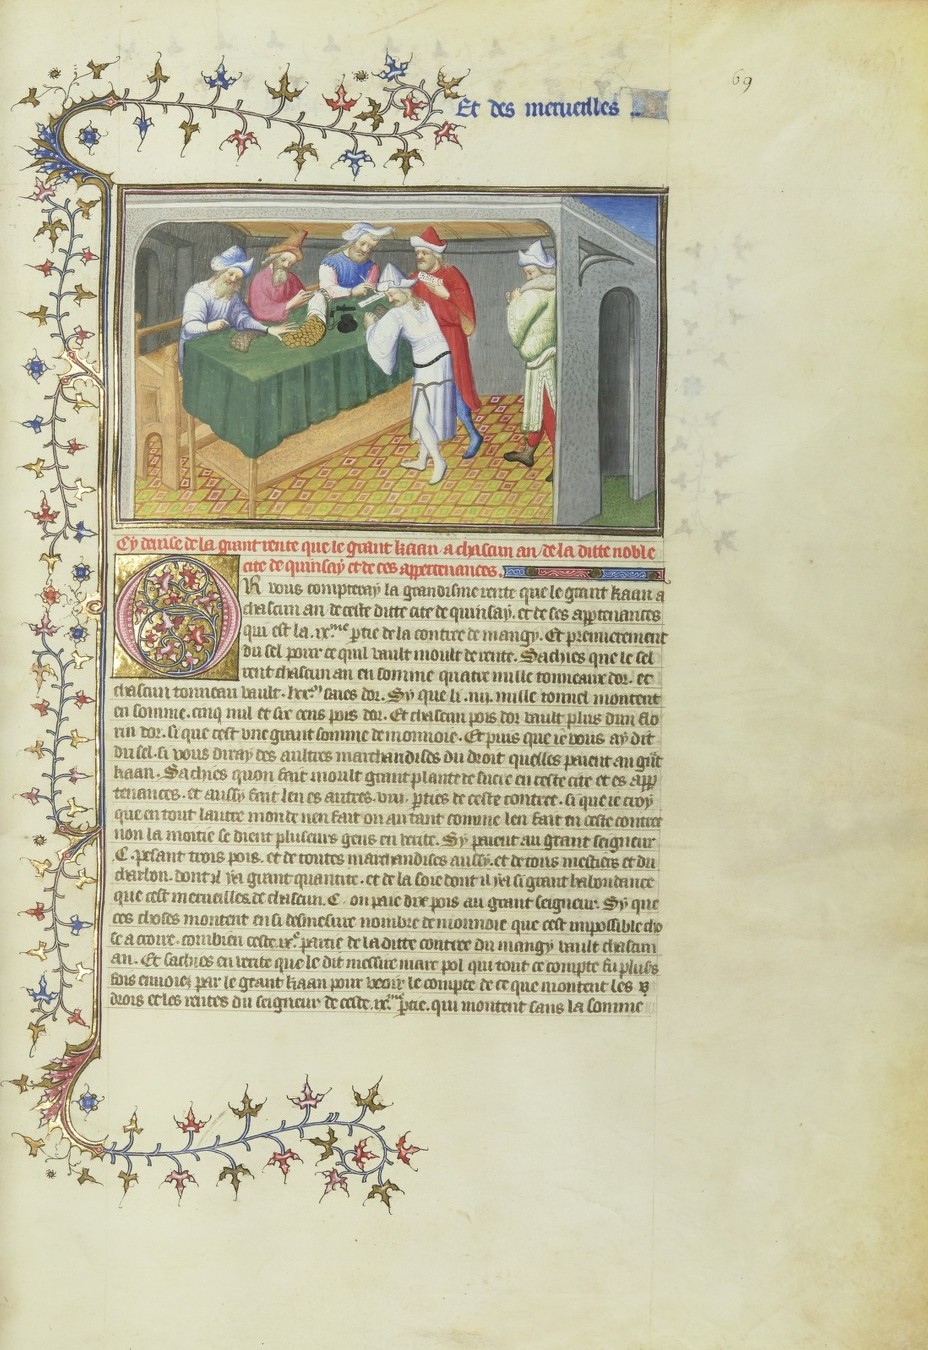 69
Et des merueilles
Cy deuise de la grant rente que le grant kaan a chascun an de la ditte noble
cite de quinsay et de ces appertenances.
OR vous compteray la grandisme rente que le grant kaan a
chascun an de ceste ditte cite de quinsay. et de ses appartenances
qui est la .ix.me ptie de la contree de mangy. Et premierement
du sel pour ce quil vault moult de rente. Sachies que le sel
rent chascun an en somme quatre mille tonneaux dor. et
chascun tonneau vault. saies dor. Sy que li .iiii. mille tonnel montent
en somme. cinq mil et six cens pois dor. Et chascun pois dor vault plus dun flo
rin dor. si que cest vne grant somme de monnoie. Et puis que ie vous ay dit
du sel. si vous diray des aultres marchandises du droit quelles paient au grant
kaan. Sachies quon fait moult grant plante de sucre en ceste cite et es app
tenances. et aussy fait len es autres .viii. pties de ceste contree. si que ie croy
que en tout lautre monde nen fait on autant comme len fait en ceste contree
non la moitie se dient pluseurs gens en verite. Sy paient au grant seigneur
.C. pesant trois pois. et de toutes marchandises aussy. et de tous mestiers et du
charbon. dont il ya grant quantite. et de la soie dont il ya si grant habondance
que cest merueilles. de chascun .C. on paie dix pois au grant seigneur. Sy que
ces choses montent en si desmesure nombre de monnoie que cest impossible cho
se a croire. combien ceste .ix.e partie de la ditte contree du mangy vault chascun
an. Et sachies en verite que le dit messire marc pol qui tout ce compte fu pluss
fois enuoiez par le grant kaan pour veoir le compte de ce que montent les
drois et les rentes du seigneur de ceste .ix.me ptie. qui montent sans la somme